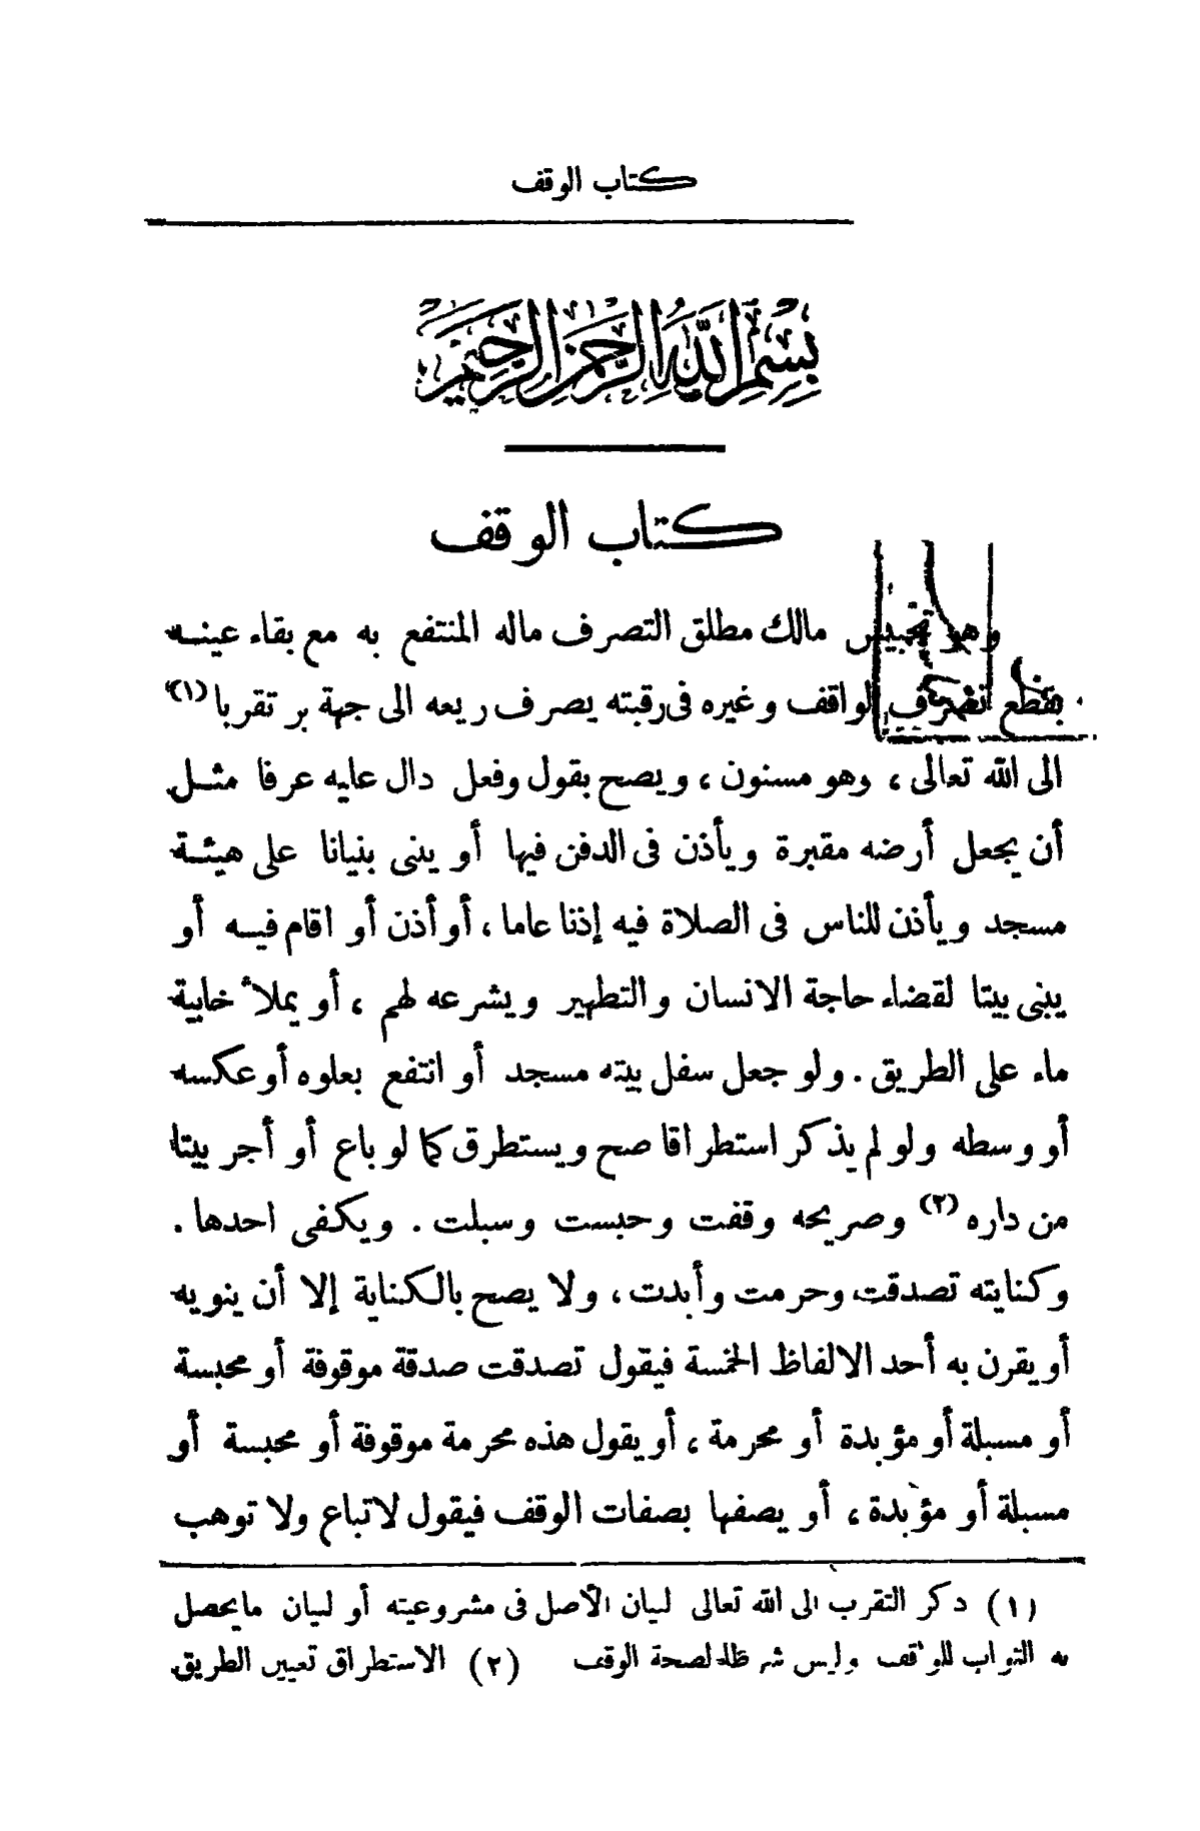 كتاب الوقف
بسم الله الرحمن الرحيم
كتاب الوقف
وهو تحبيس مالك مطلق التصرف ماله المنتفع به مع بقاء عينه
بقطع تصرف الواقف وغيره فى رقبته يصرف ريعه الى جهة بر تقربا (١)
الى الله تعالى ، وهو مسنون ، ويصح بقول وفعل دال عليه عرفا مثل
أن يجعل أرضه مقبرة ويأذن فى الدفن فيها أو يبنى بنيانا على هيئة
مسجد ويأذن للناس فى الصلاة فيه إذنا عاما ، أو أذن أو اقام فيه أو
يبنى بيتا لقضاء حاجة الانسان والتطهير ويشرعه لهم ، أو يملأ خابية
ماء على الطريق . ولو جعل سفل بيته مسجد أو انتفع بعلوه أو عكسه
أو وسطه ولو لم يذكر استطراقا صح ويستطرق كما لو باع أو أجر بيتا
من داره (٢) وصريحه وقفت وحبست وسبلت . ويكفى احدها .
وكنايته تصدقت وحرمت وأبدت ، ولا يصح بالكناية إلا أن ينويه
أو يقرن به أحد الالفاظ الخمسة فيقول تصدقت صدقة موقوفة أو محبسة
أو مسبلة أو مؤبدة أو محرمة ، أو يقول هذه محرمة موقوفة أو محبسة أو
مسبلة أو مؤبدة ، أو يصفها بصفات الوقف فيقول لاتباع ولا توهب
(١) ذكر التقرب الى الله تعالى لبيان الأصل فى مشروعيته أو لبيان مايحصل
به الثواب للواقف وليس شرطا لصحة الوقف (٢) الاستطراق تعيين الطريق